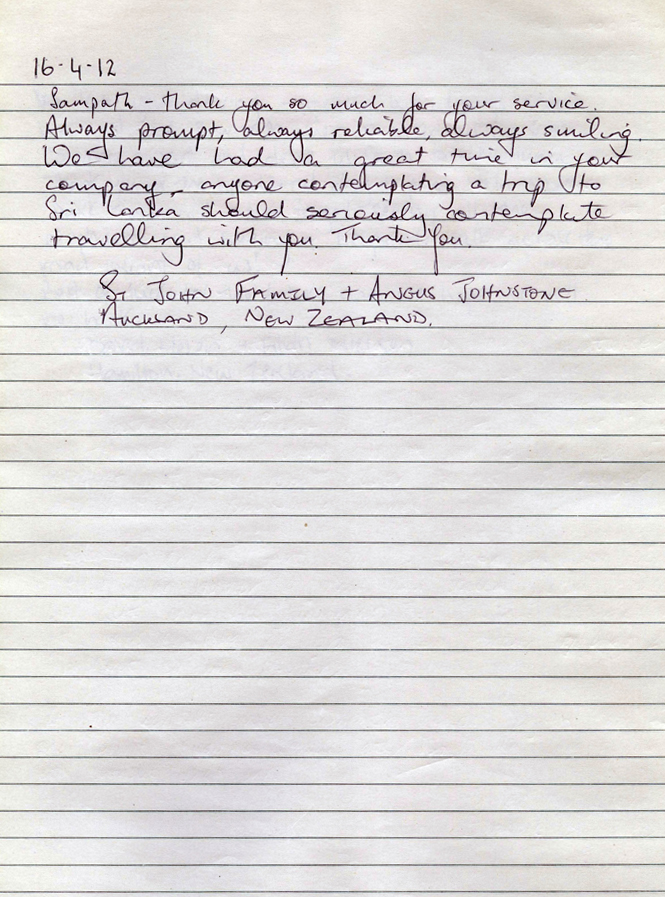 16-4-12
Sampath - thank you so much for your service.
Always prompt, always reliable, always smiling.
We have had a great time in your
company - anyone contemplating a trip to
Sri Lanka should seriously contemplate
travelling with you. Thank You.
St JOHN FAMILY + ANGUS JOHNSTONE
AUCKLAND, NEW ZEALAND.